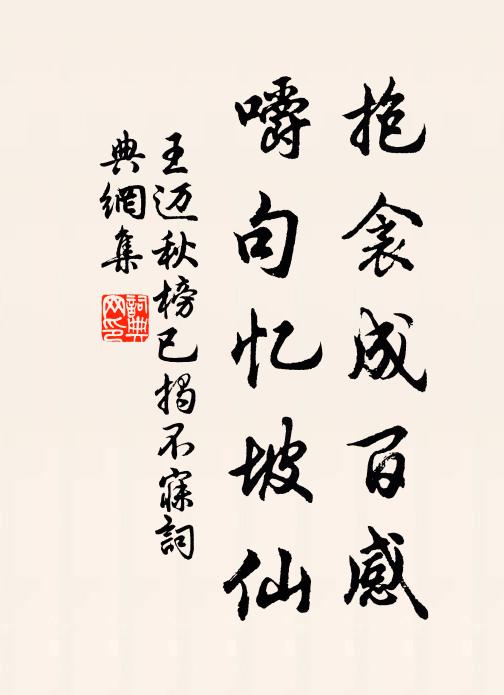 抱衾成百感
嚼句忆坡仙
王迈秋榜已揭不寐詞
典網集
詞典
网印